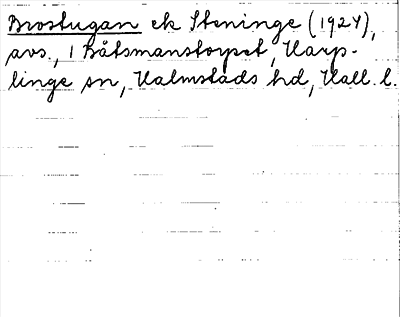 Brostugan ek Steninge (1924),
avs., 1 Båtsmanstorpet, Harp-
linge sn, Halmstads hd, Hall. l.